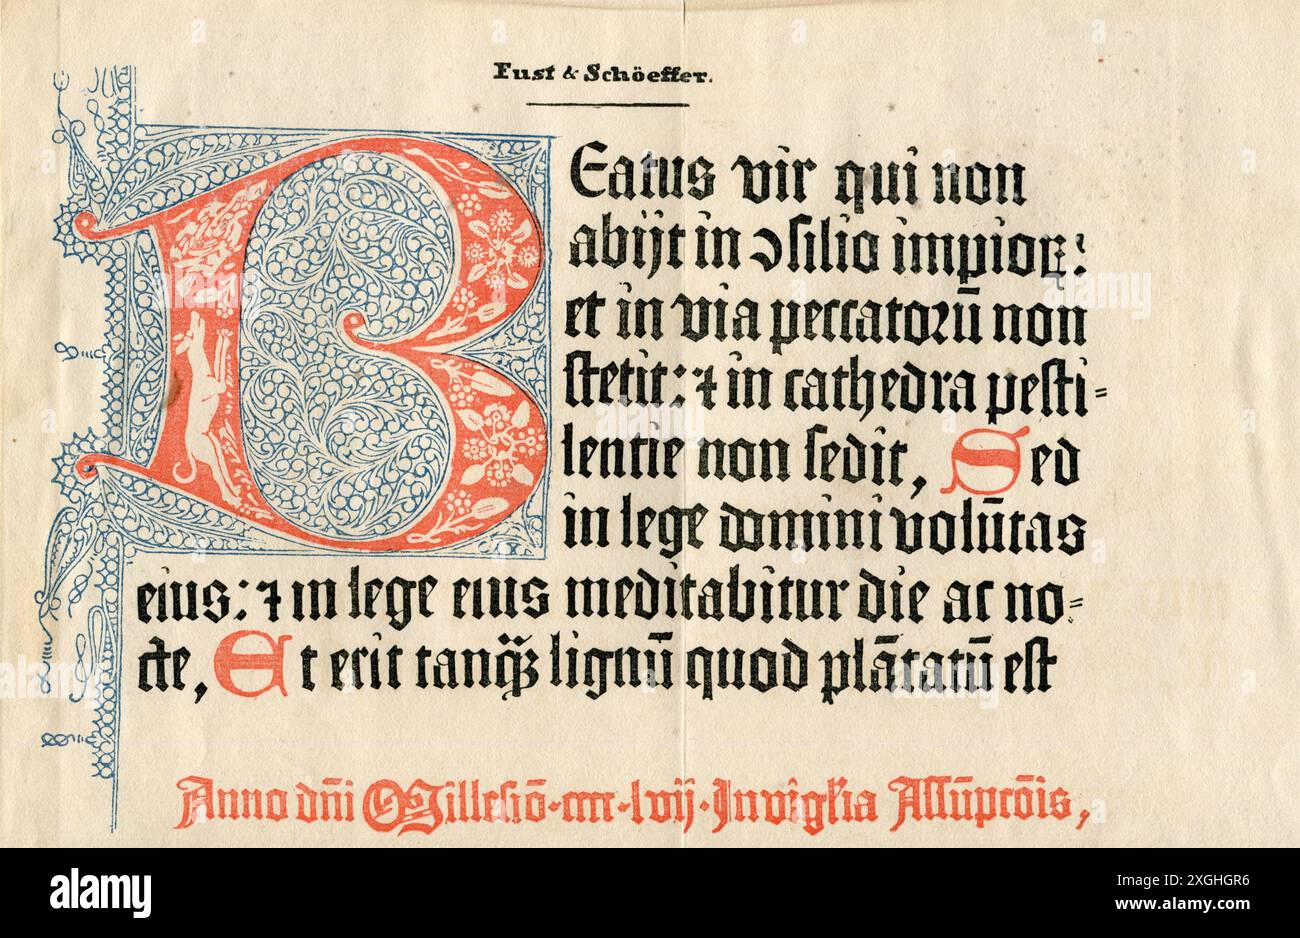 Fust & Schöeffer.
BEatus vir qui non
abijt in ꝯsilio impioꝝ:
et in via peccatorū non
stetit: ⁊ in cathedra pesti-
lentie non sedit, Sed
in lege domini volūtas
eius: ⁊ in lege eius meditabitur die ac no-
cte, Et erit tanqꝫ lignū quod plātatū est
Anno dñi Millesiō·cccc·lvij·In vigłia Assūpcōis,
alamy
Image ID: 2XGHGR6
www.alamy.com